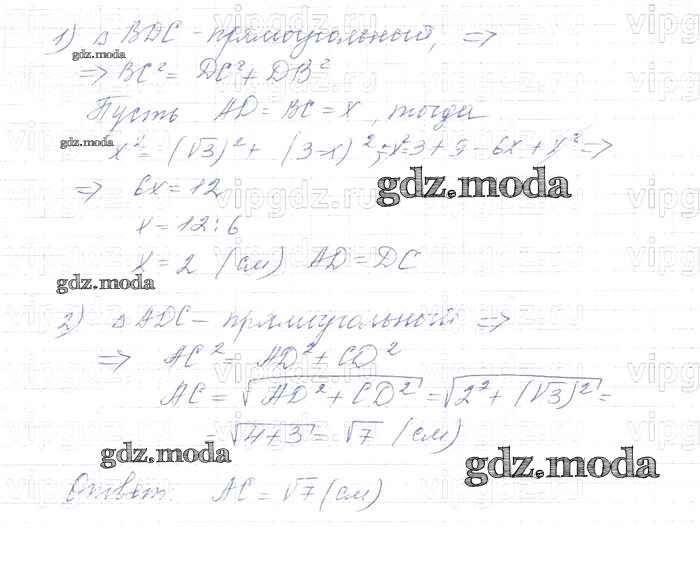 1) △ BDC - прямоугольный, ⇒
gdz.moda
⇒ BC² = DC² + DB²
Пусть AD = BC = x, тогда
gdz.moda
x² = (√3)² + (3-x)²; x² = 3 + 9 - 6x + x² ⇒
⇒ 6x = 12
gdz.moda
x = 12 : 6
x = 2 (см) AD = DC
gdz.moda
2) △ ADC - прямоугольный ⇒
⇒ AC² = AD² + CD²
AC = √AD² + CD² = √2² + (√3)² =
√4+3 = √7 (см)
gdz.moda
gdz.moda
Ответ: AC = √7 (см)